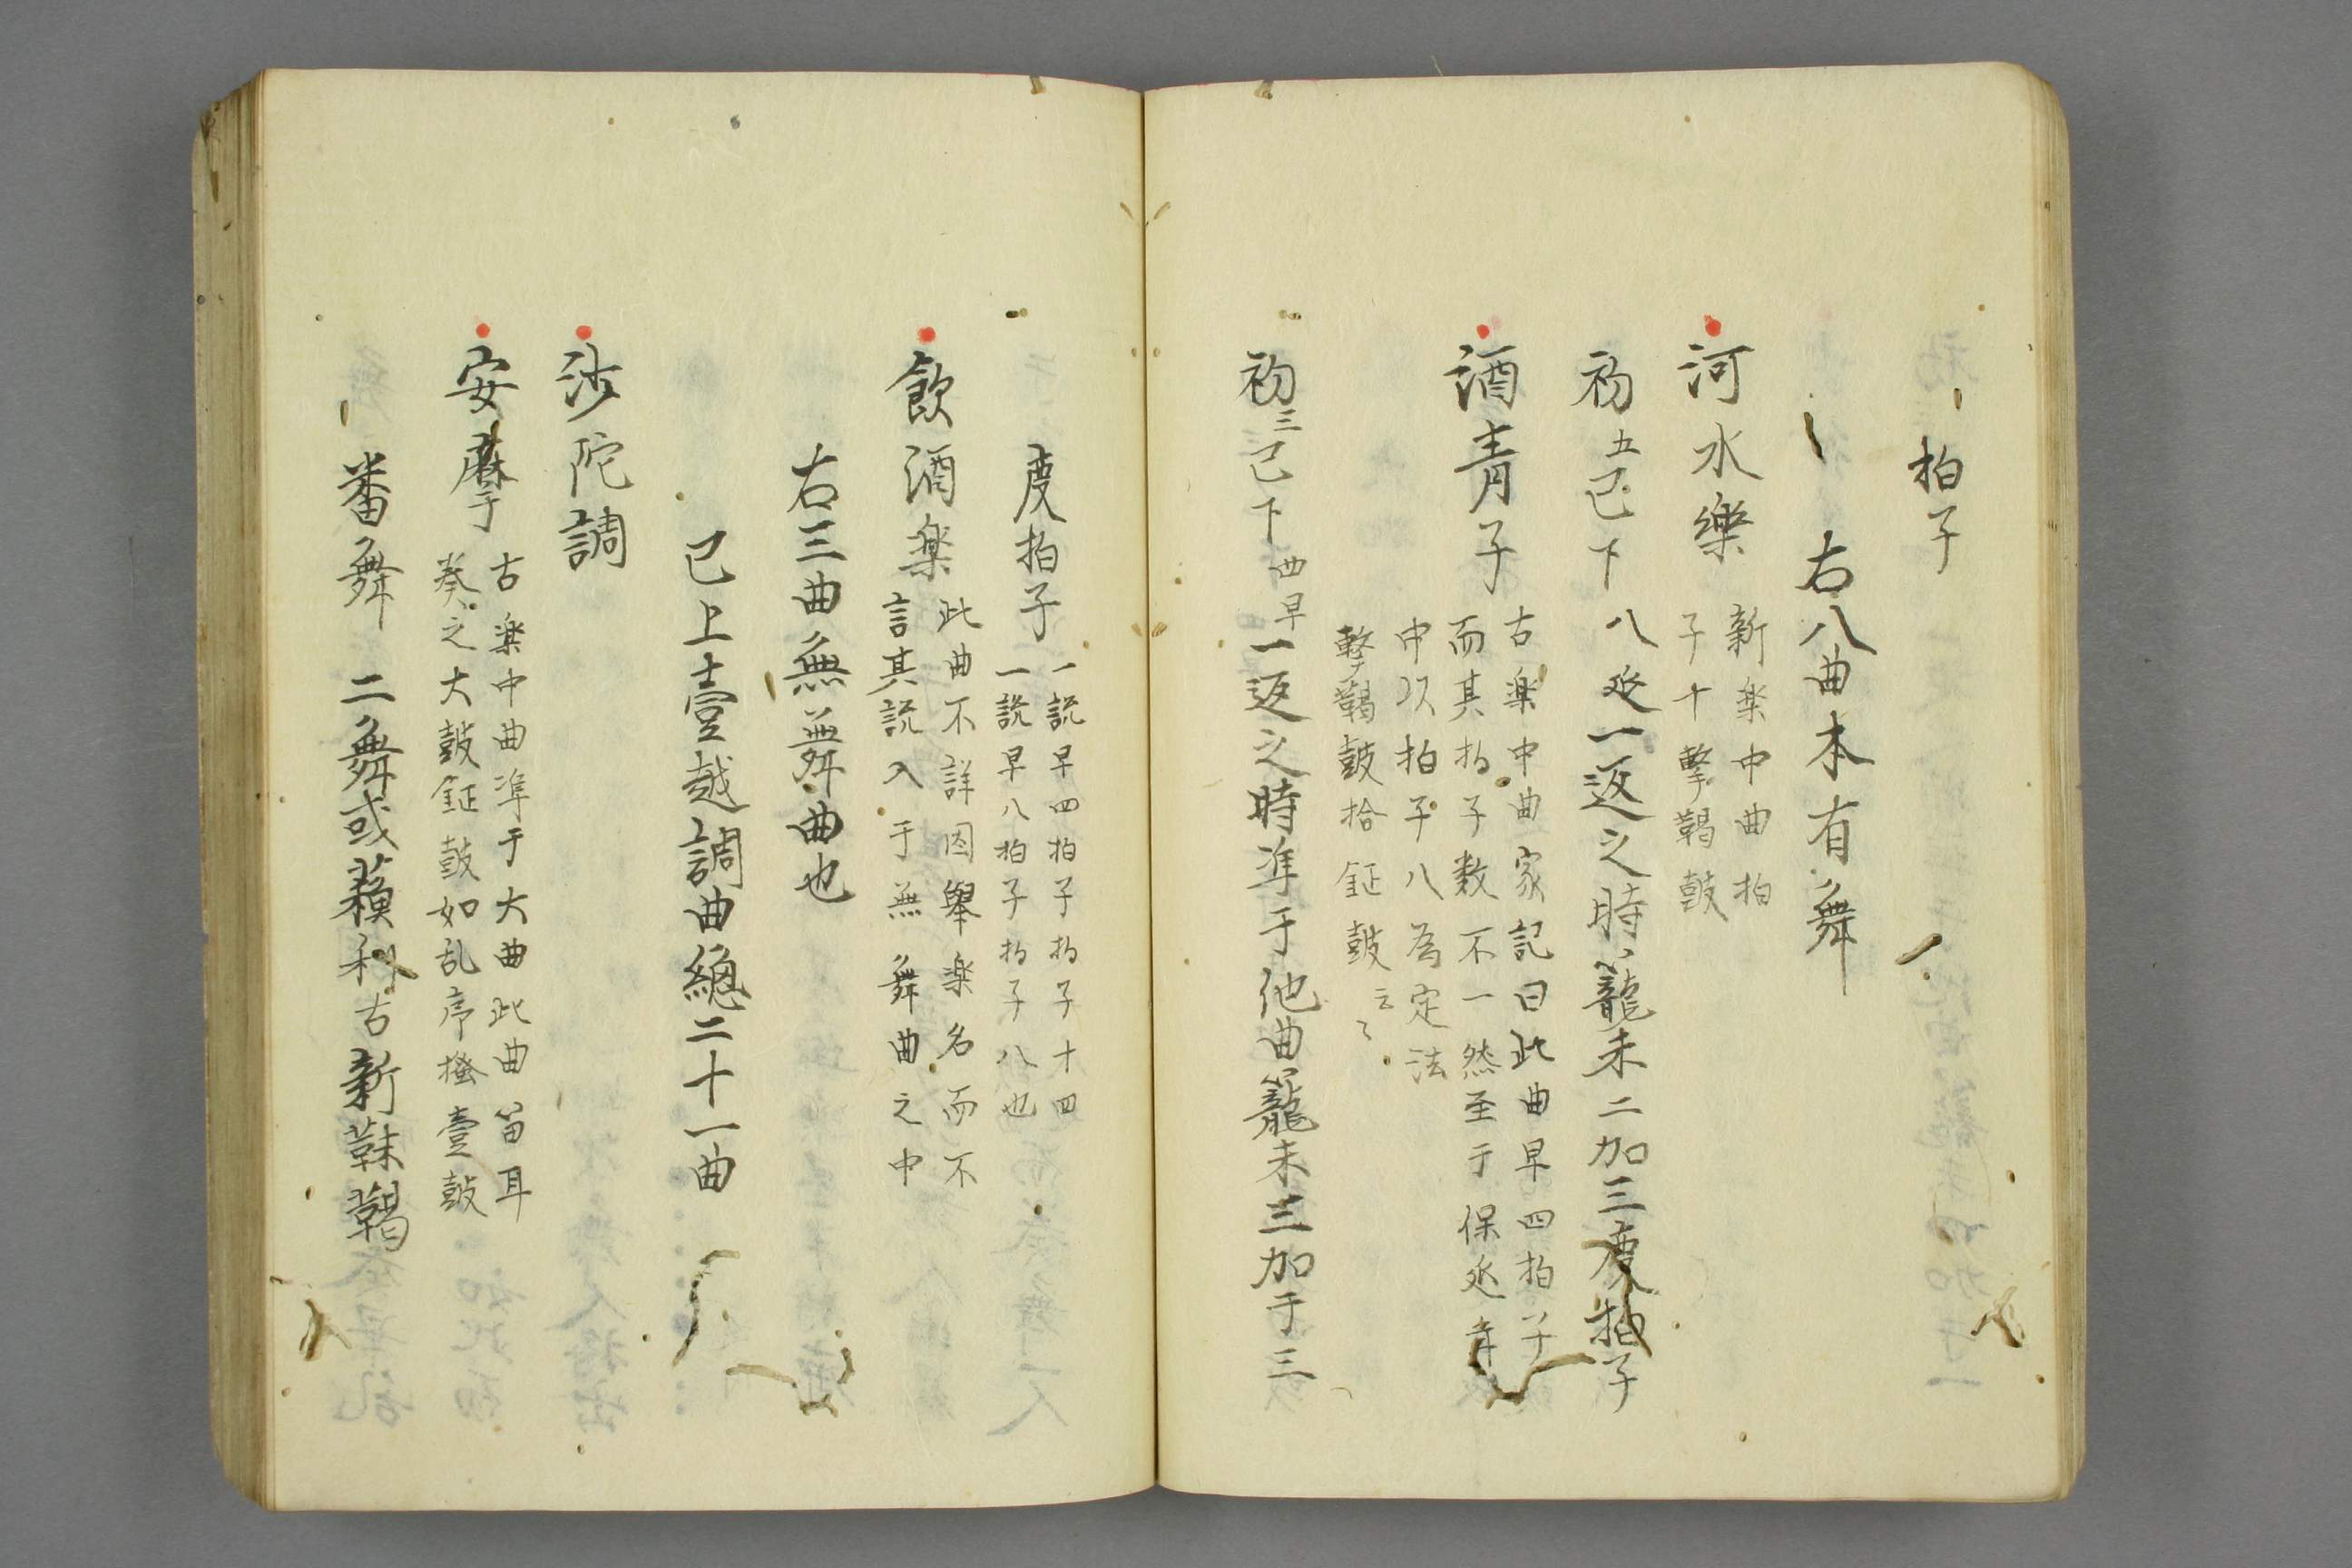 拍子
右八曲本有舞
河水樂
新楽中曲拍
子十撃鞨鼓
初五已下八延一返之時籠未二加三度拍子
酒青子
古楽中曲家記曰此曲早四拍子
而其拍子数不一然至于保延年
中以拍子八為定法
撃鞨鼓拾鉦鼓云々
初三已下四早一返之時準于他曲籠未三加于三
度拍子
一説早四拍子拍子十四
一説早八拍子拍子八也
飲酒楽
此曲不詳因舉楽名而不
言其説入于無舞曲之中
右三曲無舞曲也
已上壹越調曲總二十一曲
沙陀調
安摩
古楽中曲準于大曲此曲笛耳
奏之大鼓鉦鼓如乱序搔壹鼓
番舞 二舞或蘓利古新靺鞨